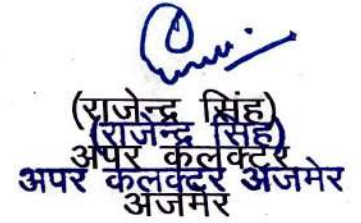 (राजेन्द्र सिंह)
(राजेन्द्र सिंह)
अपर कलक्टर
अपर कलक्टर अजमेर
अजमेर